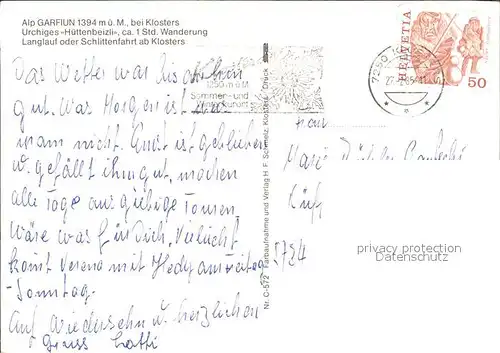 Alp GARFIUN 1394 m ü. M., bei Klosters
Urchiges «Hüttenbeizli», ca. 1 Std. Wanderung
Langlauf oder Schlittenfahrt ab Klosters
Das Wetter war bis
gut. Was Morgen ist
man nicht. Gust ist geblieben
u. gefällt ihm gut, machen
alle Tage ausgiebige Touren,
wäre was für Dich, vielleicht
komt Verena mit Hedy am Freitag
- Sonntag.
Auf Wiedersehn u. herzlichen
Gruss
1250 m ü M
Sommer- und
Winterkurort
Nr. C-572 Farbaufnahme und Verlag H. F. Schmelz, Klosters - Druck
7250
HELVETIA
50
Frau
7324
privacy protection
Datenschutz